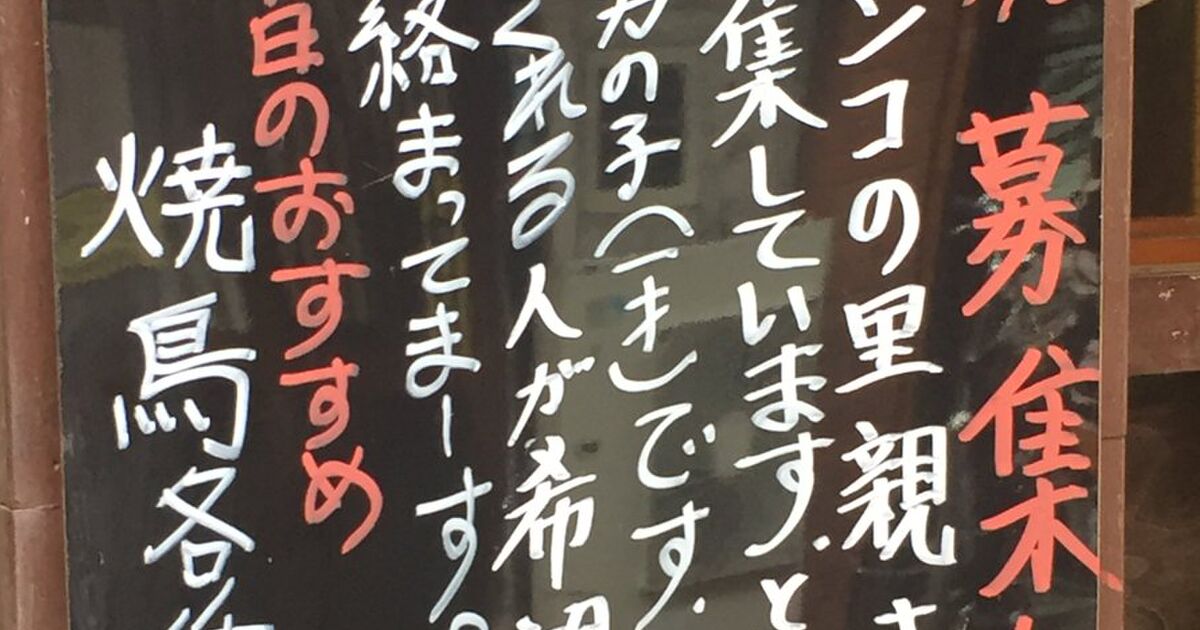 募集
ンコの里親さ
集しています。と
の子(一才)です。
くれる人が希
絡まってまーす。
日のおすすめ
焼鳥各